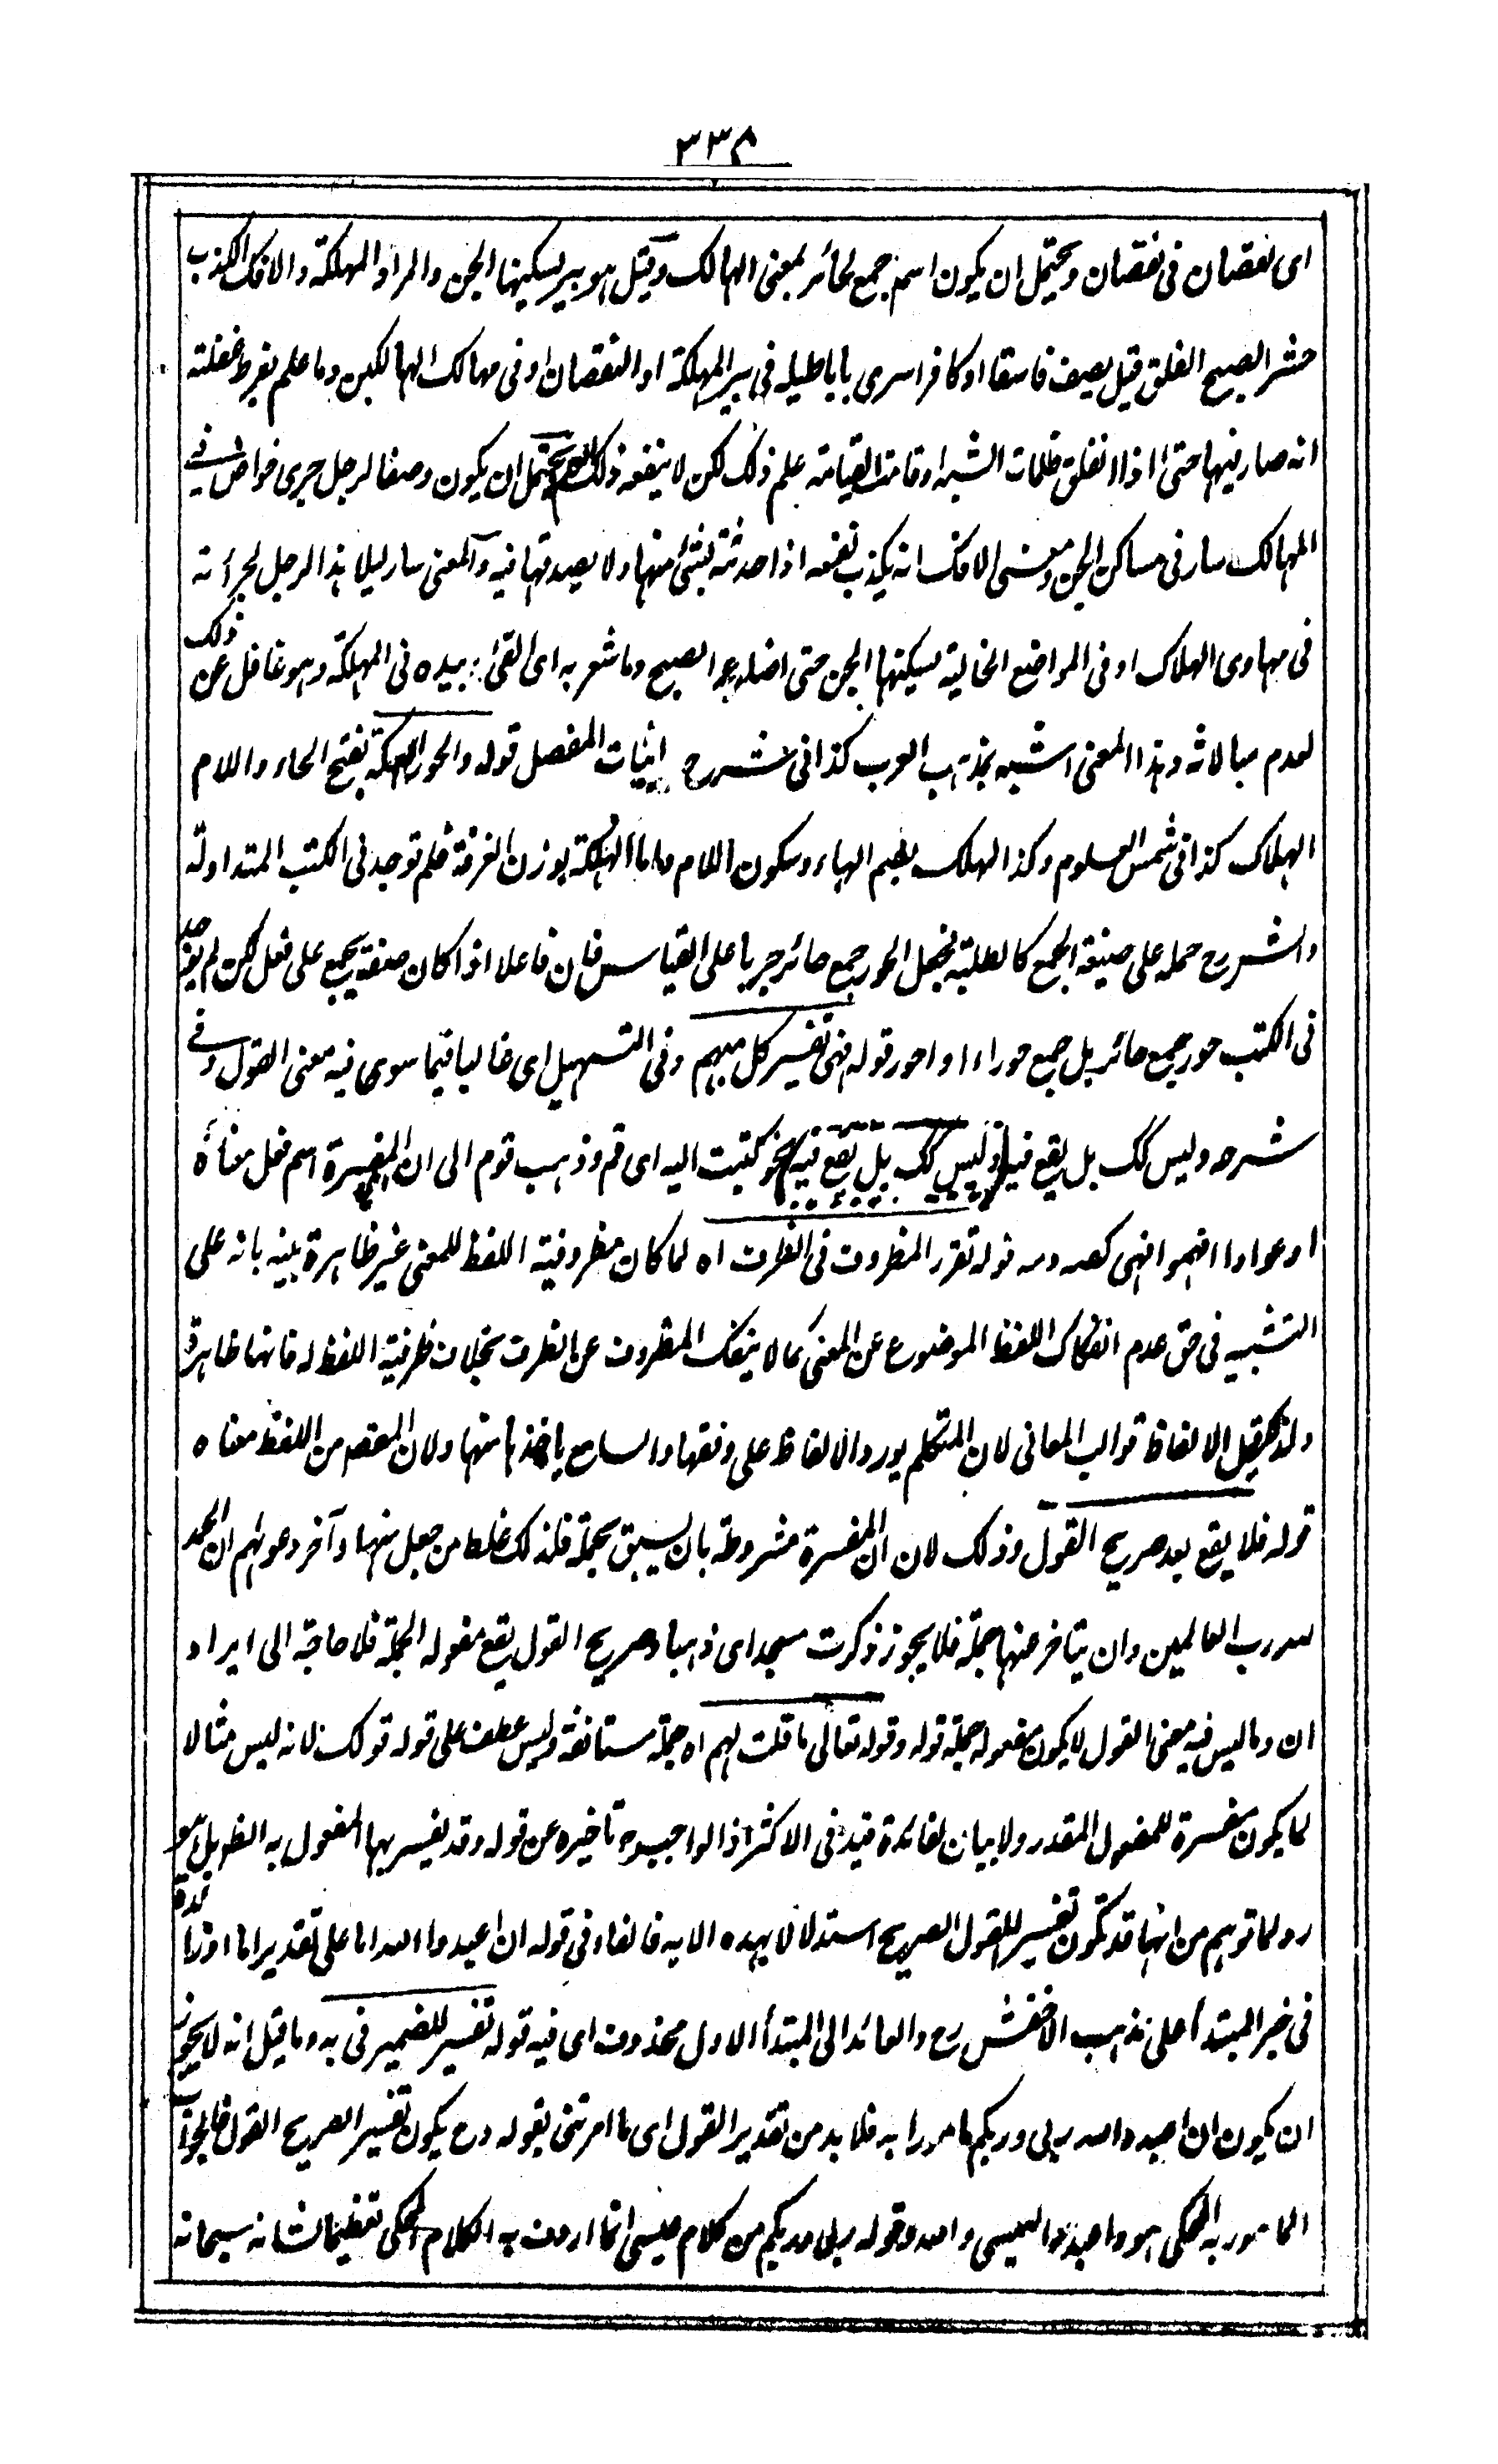 ٣٣٥
اى نقصان فى نقصان ويحتمل ان يكون اسم جمع لحائر بمعنى الهالك وقيل هو بير يسكنها الجن والمراد المهلكة والافك الكذب
حشر الصبح الفلق قيل يصف فاسقا او كافرا سرى باباطيله فى بير المهلكة او النقصان او فى مهالك الهالكين وما علم بفرط غفلته
انه صار فيها حتى اذا انفلق ظلمات الشبه او قامت القيامة علم ذلك لكن لا ينفعه ذلك ويحتمل ان يكون وصفا لرجل جرى خواض فى
المهالك سار فى مساكن الجن ومعنى الافك انه يكذب نفسه اذا حدثته بشئ منها ولا يصدقها فيه والمعنى سار ليلا هذا الرجل لجرأته
فى مهاوى الهلاك او فى المواضع الخالية يسكنها الجن حتى اضاء الصبح وما شعر به اى القى بيده فى المهلكة وهو غافل عن ذلك
لعدم مبالاته وهذا المعنى اشبه بمذهب العرب كذا فى شرح ابيات المفصل قوله والحور الهلكة بفتح الحاء واللام
الهلاك كذا فى شمس العلوم وكذا الهلك بضم الهاء وسكون اللام واما الهلكة بوزن الغرفة فلم توجد فى الكتب المتداولة
والشرح حمله على صيغة الجمع كالطلبة فجعل الحور جمع حائر جريا على القياس فان فاعلا اذا كان صفة يجمع على فعل لكن لم يوجد
فى الكتب حور جمع حائر بل جمع حوراء او احور قوله فهى تفسير كل مبهم وفى التسهيل اى غالبا فيما سوى فيه معنى القول وفى
شرحه وليس كك بل يقع فيه وليس كك بل يقع فيه نحو كتبت اليه اى قم وذهب قوم الى ان المفسرة اسم فعل معناه
او عوا وا افهموا انهى كصه ومه قوله تقرر المظروف فى الظرف اه لما كان مظروفية اللفظ للمعنى غير ظاهرة بينه بانه على
التشبيه فى حق عدم انفكاك اللفظ الموضوع عن المعنى كما لا ينفك المظروف عن الظرف بخلاف ظرفية اللفظ له فانها ظاهرة
ولذا قيل الالفاظ قوالب المعانى لان المتكلم يورد الالفاظ على وفقها والسامع ياخذها منها ولان المقصد من اللفظ معناه
قوله فلا يقع بعد صريح القول وذلك لان ان المفسرة مشروطة بان يسبق بجملة فلذلك غلط من جعل منها وآخر دعوٰهم ان الحمد
لله رب العالمين وان يتاخر عنها جملة فلا يجوز ذكرت مسجدا اى ذهبا وصريح القول يقع مفعوله الجملة فلا حاجة الى ايراد
ان وما ليس فيه معنى القول لا يكون مفعوله جملة قوله وقوله تعالى ما قلت لهم اه جملة مستانفة وليس عطف على قوله قولك لانه ليس مثالا
لما يكون مفسرة للمفعول المقدر ولا بيان لفائدة قيد فى الاكثر اذ الواجب تاخيره عن قوله وقد يفسر بها المفعول به الظاهر بل هو
رد لما توهم من انها قد تكون تفسيرا للقول الصريح استدلالا بهذه الاية فالفاء فى قوله ان اعبدوا الله اما على تقدير اما او زائدة
فى خبر المبتدأ على مذهب الاخفش رح والعائد الى المبتدأ الاول محذوف اى فيه قوله تفسير للضمير فى به وما قيل انه لا يجوز
ان يكون ان اعبدوا الله ربى وربكم مامورا به فلا بد من تقدير القول اى ما امرتنى بقوله وح يكون تفسير الصريح القول فالجواب
المامور به المحكى هو واعبدوا الله وقوله ربى وربكم من كلام عيسى انما اردف به الكلام المحكى تعظيما لشانه سبحانه